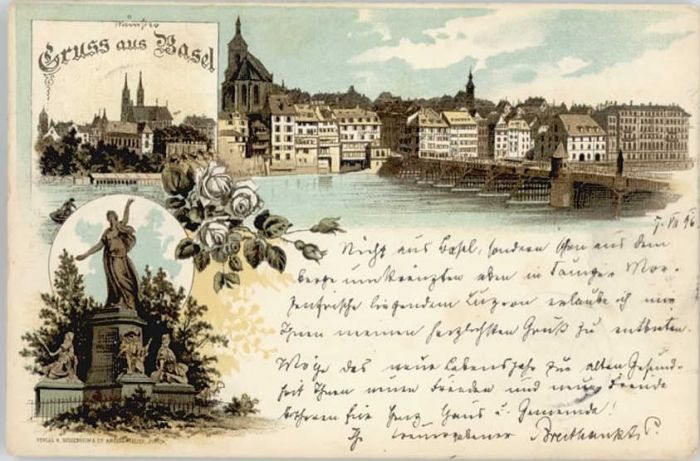 Münster
Gruss aus Basel
7. VII 96.
Nicht aus Basel, sondern schon aus dem
berge umkränzten eben in
liegendem Luzern erlaube ich mir
Ihnen meinen herzlichsten Gruß zu entbieten.
Möge das neue Lebensjahr zur alten Gesund-
heit Ihnen neuen Frieden und neue Freude
für Herz Haus u. Gemeinde!
Ihr ergebener
VERLAG